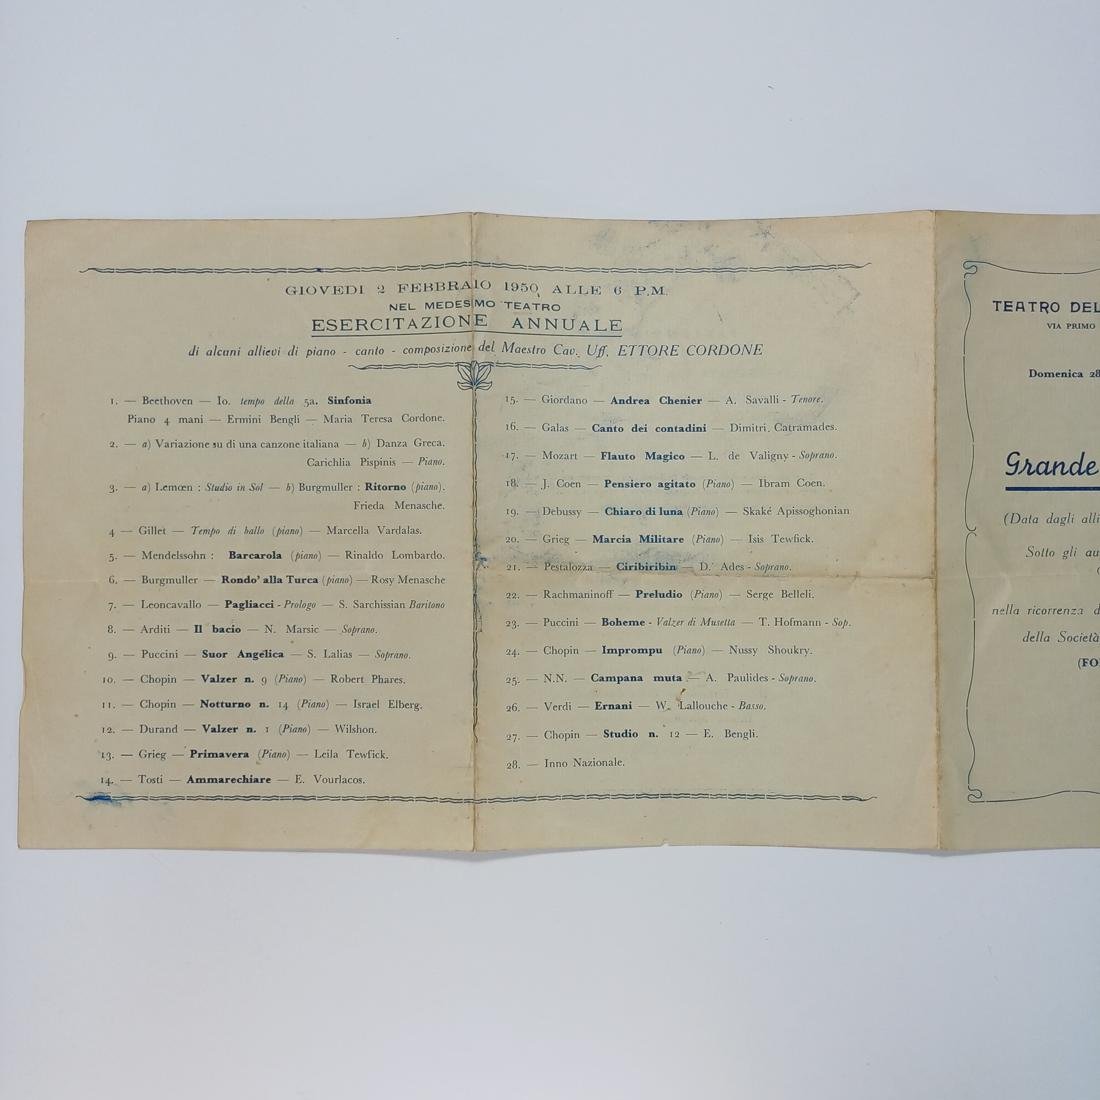 GIOVEDI 2 FEBBRAIO 1950, ALLE 6 P.M.
NEL MEDESIMO TEATRO
ESERCITAZIONE ANNUALE
di alcuni allievi di piano - canto - composizione del Maestro Cav. Uff. ETTORE CORDONE
1. — Beethoven — Io. tempo della 5a. Sinfonia
Piano 4 mani — Ermini Bengli — Maria Teresa Cordone.
2. — a) Variazione su di una canzone italiana — b) Danza Greca.
Carichlia Pispinis — Piano.
3. — a) Lemœn : Studio in Sol — b) Burgmuller : Ritorno (piano).
Frieda Menasche.
4 — Gillet — Tempo di ballo (piano) — Marcella Vardalas.
5. — Mendelssohn : Barcarola (piano) — Rinaldo Lombardo.
6. — Burgmuller — Rondo' alla Turca (piano) — Rosy Menasche
7. — Leoncavallo — Pagliacci - Prologo — S. Sarchissian Baritono
8. — Arditi — Il bacio — N. Marsic — Soprano.
9. — Puccini — Suor Angelica — S. Lalias — Soprano.
10. — Chopin — Valzer n. 9 (Piano) — Robert Phares.
11. — Chopin — Notturno n. 14 (Piano) — Israel Elberg.
12. — Durand — Valzer n. 1 (Piano) — Wilshon.
13. — Grieg — Primavera (Piano) — Leila Tewfick.
14. — Tosti — Ammarechiare — E. Vourlacos.
15. — Giordano — Andrea Chenier — A. Savalli - Tenore.
16. — Galas — Canto dei contadini — Dimitri. Catramades.
17. — Mozart — Flauto Magico — L. de Valigny - Soprano.
18. — J. Coen — Pensiero agitato (Piano) — Ibram Coen.
19. — Debussy — Chiaro di luna (Piano) — Skaké Apissoghonian
20. — Grieg — Marcia Militare (Piano) — Isis Tewfick.
21. — Pestalozza — Ciribiribin — D. Ades - Soprano.
22. — Rachmaninoff — Preludio (Piano) — Serge Belleli.
23. — Puccini — Boheme - Valzer di Musetta — T. Hofmann - Sop.
24. — Chopin — Imprompu (Piano) — Nussy Shoukry.
25. — N.N. — Campana muta — A. Paulides - Soprano.
26. — Verdi — Ernani — W. Lallouche - Basso.
27. — Chopin — Studio n. 12 — E. Bengli.
28. — Inno Nazionale.
TEATRO DEL
VIA PRIMO
Domenica 28
Grande
(Data dagli alli
Sotto gli au
nella ricorrenza d
della Società
(FO